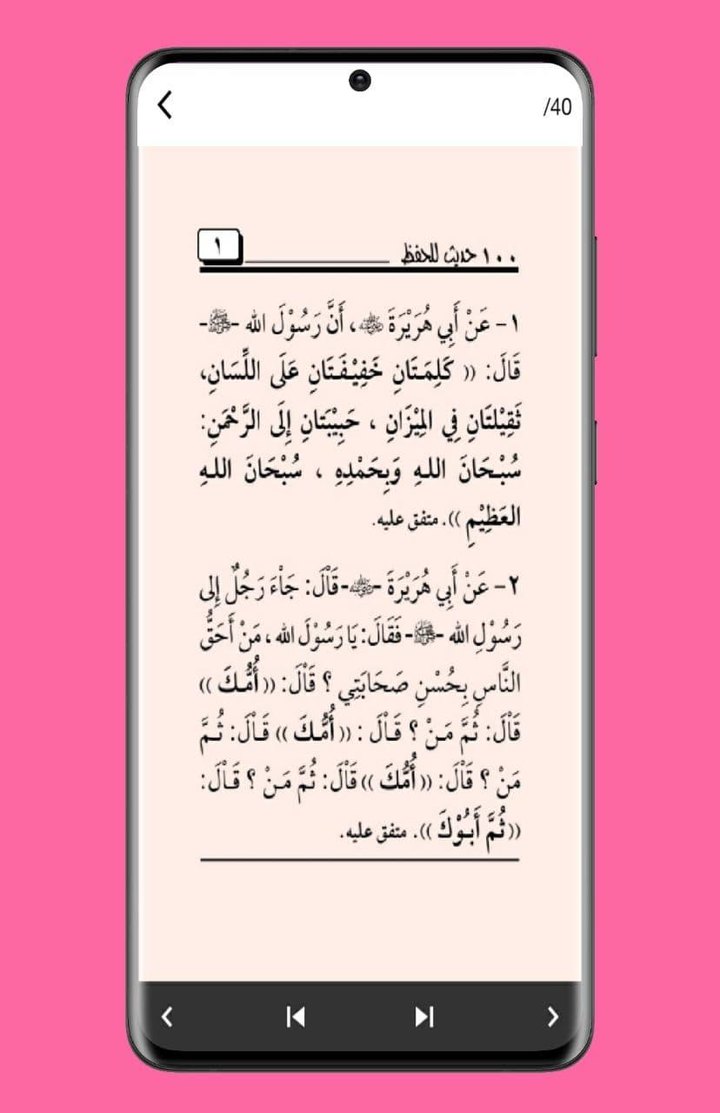 /40
١٠٠ حديث للحفظ
١
١- عَنْ أَبِي هُرَيْرَةَ ﵁، أَنَّ رَسُوْلَ الله -ﷺ-
قَالَ: (( كَلِمَتَانِ خَفِيْفَتَانِ عَلَى اللِّسَانِ،
ثَقِيْلتَانِ فِي المِيْزَانِ ، حَبِيْبَتانِ إِلَى الرَّحْمَنِ:
سُبْحَانَ اللهِ وَبِحَمْدِهِ ، سُبْحَانَ اللهِ
العَظِيْمِ )). متفق عليه.
٢- عَنْ أَبِي هُرَيْرَةَ -﵁- قَاْلَ: جَاْءَ رَجُلٌ إِلى
رَسُوْلِ الله -ﷺ- فَقَالَ: يَا رَسُوْلَ الله ، مَنْ أَحَقُّ
النَّاسِ بِحُسْنِ صَحَابَتِي ؟ قَاْلَ: (( أُمُّكَ ))
قَاْلَ: ثُمَّ مَنْ ؟ قَاْلَ : (( أُمُّكَ )) قَاْلَ: ثُمَّ
مَنْ ؟ قَاْلَ: (( أُمُّكَ )) قَاْلَ: ثُمَّ مَنْ ؟ قَاْلَ:
(( ثُمَّ أَبُوْكَ )). متفق عليه.